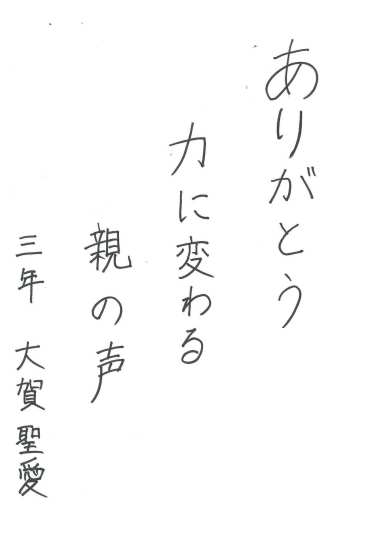 ありがとう
力に変わる
親の声
三年 大賀聖愛